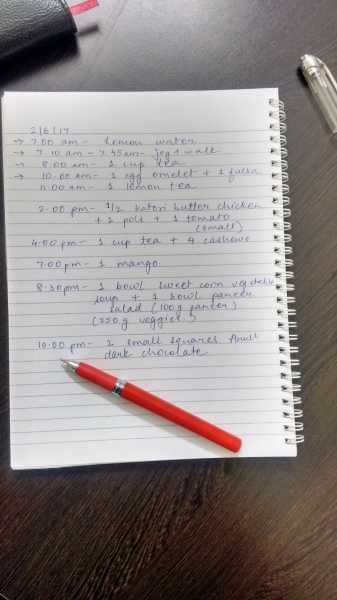 2/6/17
→ 7.00 am - Lemon water
→ 7.10 am - 7.45am - jog + walk
→ 8.00 am - 1 cup tea
→ 10.00 am - 1 egg omelet + 1 fulka
11.00 am - 1 lemon tea
2.00 pm - 1/2 katori butter chicken
+ 2 poli + 1 tomato
(small)
4.00 pm - 1 cup tea + 4 cashews
7.00 pm - 1 mango.
8.30pm - 1 bowl sweet corn vegetable
soup + 1 bowl paneer
salad (100g paneer)
(250g veggies)
10.00 pm - 2 small squares Amul
dark chocolate